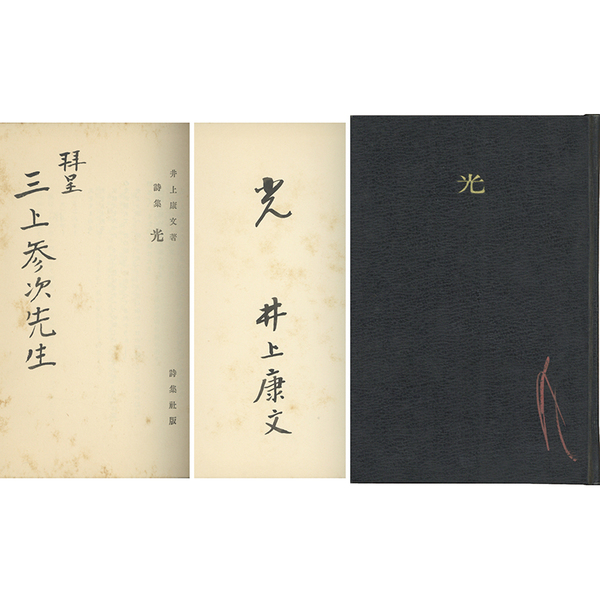 井上康文著
詩集 光
詩集社版
拝呈
三上参次先生
光
井上康文
光